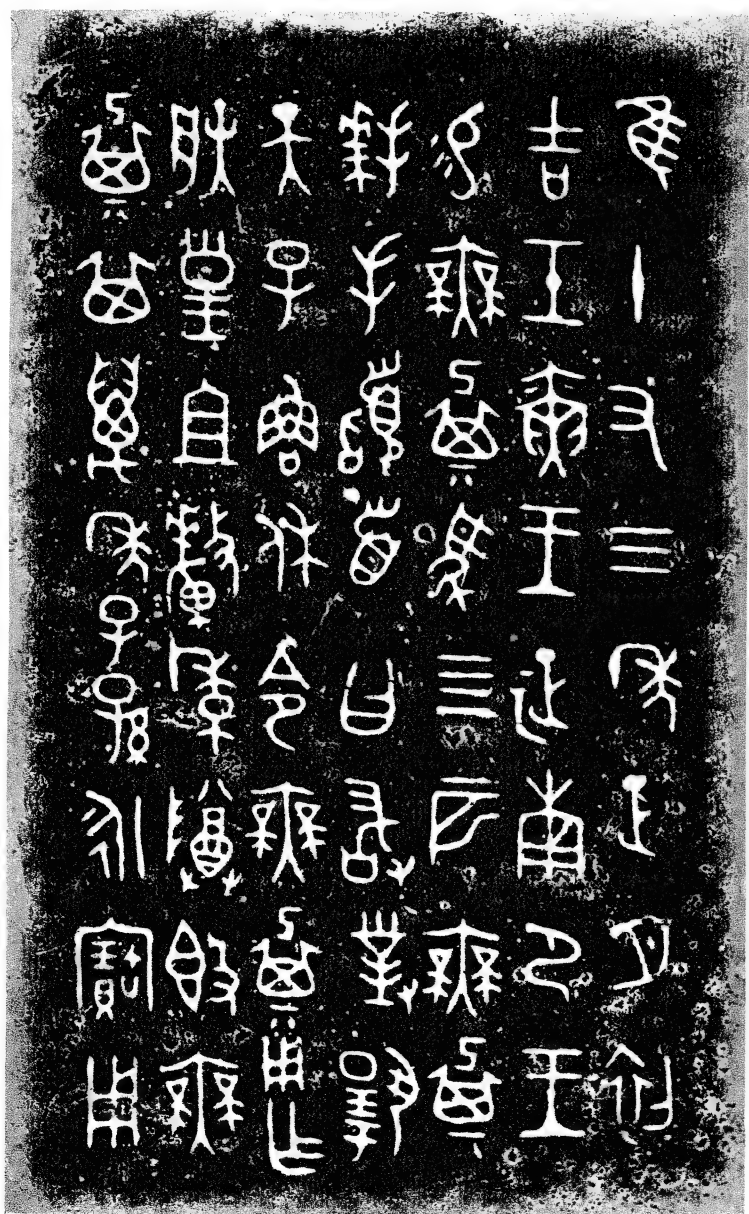 隹十又三年正月初
吉壬寅王征南尸王
易無㠱馬四匹無㠱
拜手稽首曰敢對揚
天子魯休令無㠱用乍
朕皇且釐季尊𣪘無
㠱其萬年子孫永寶用